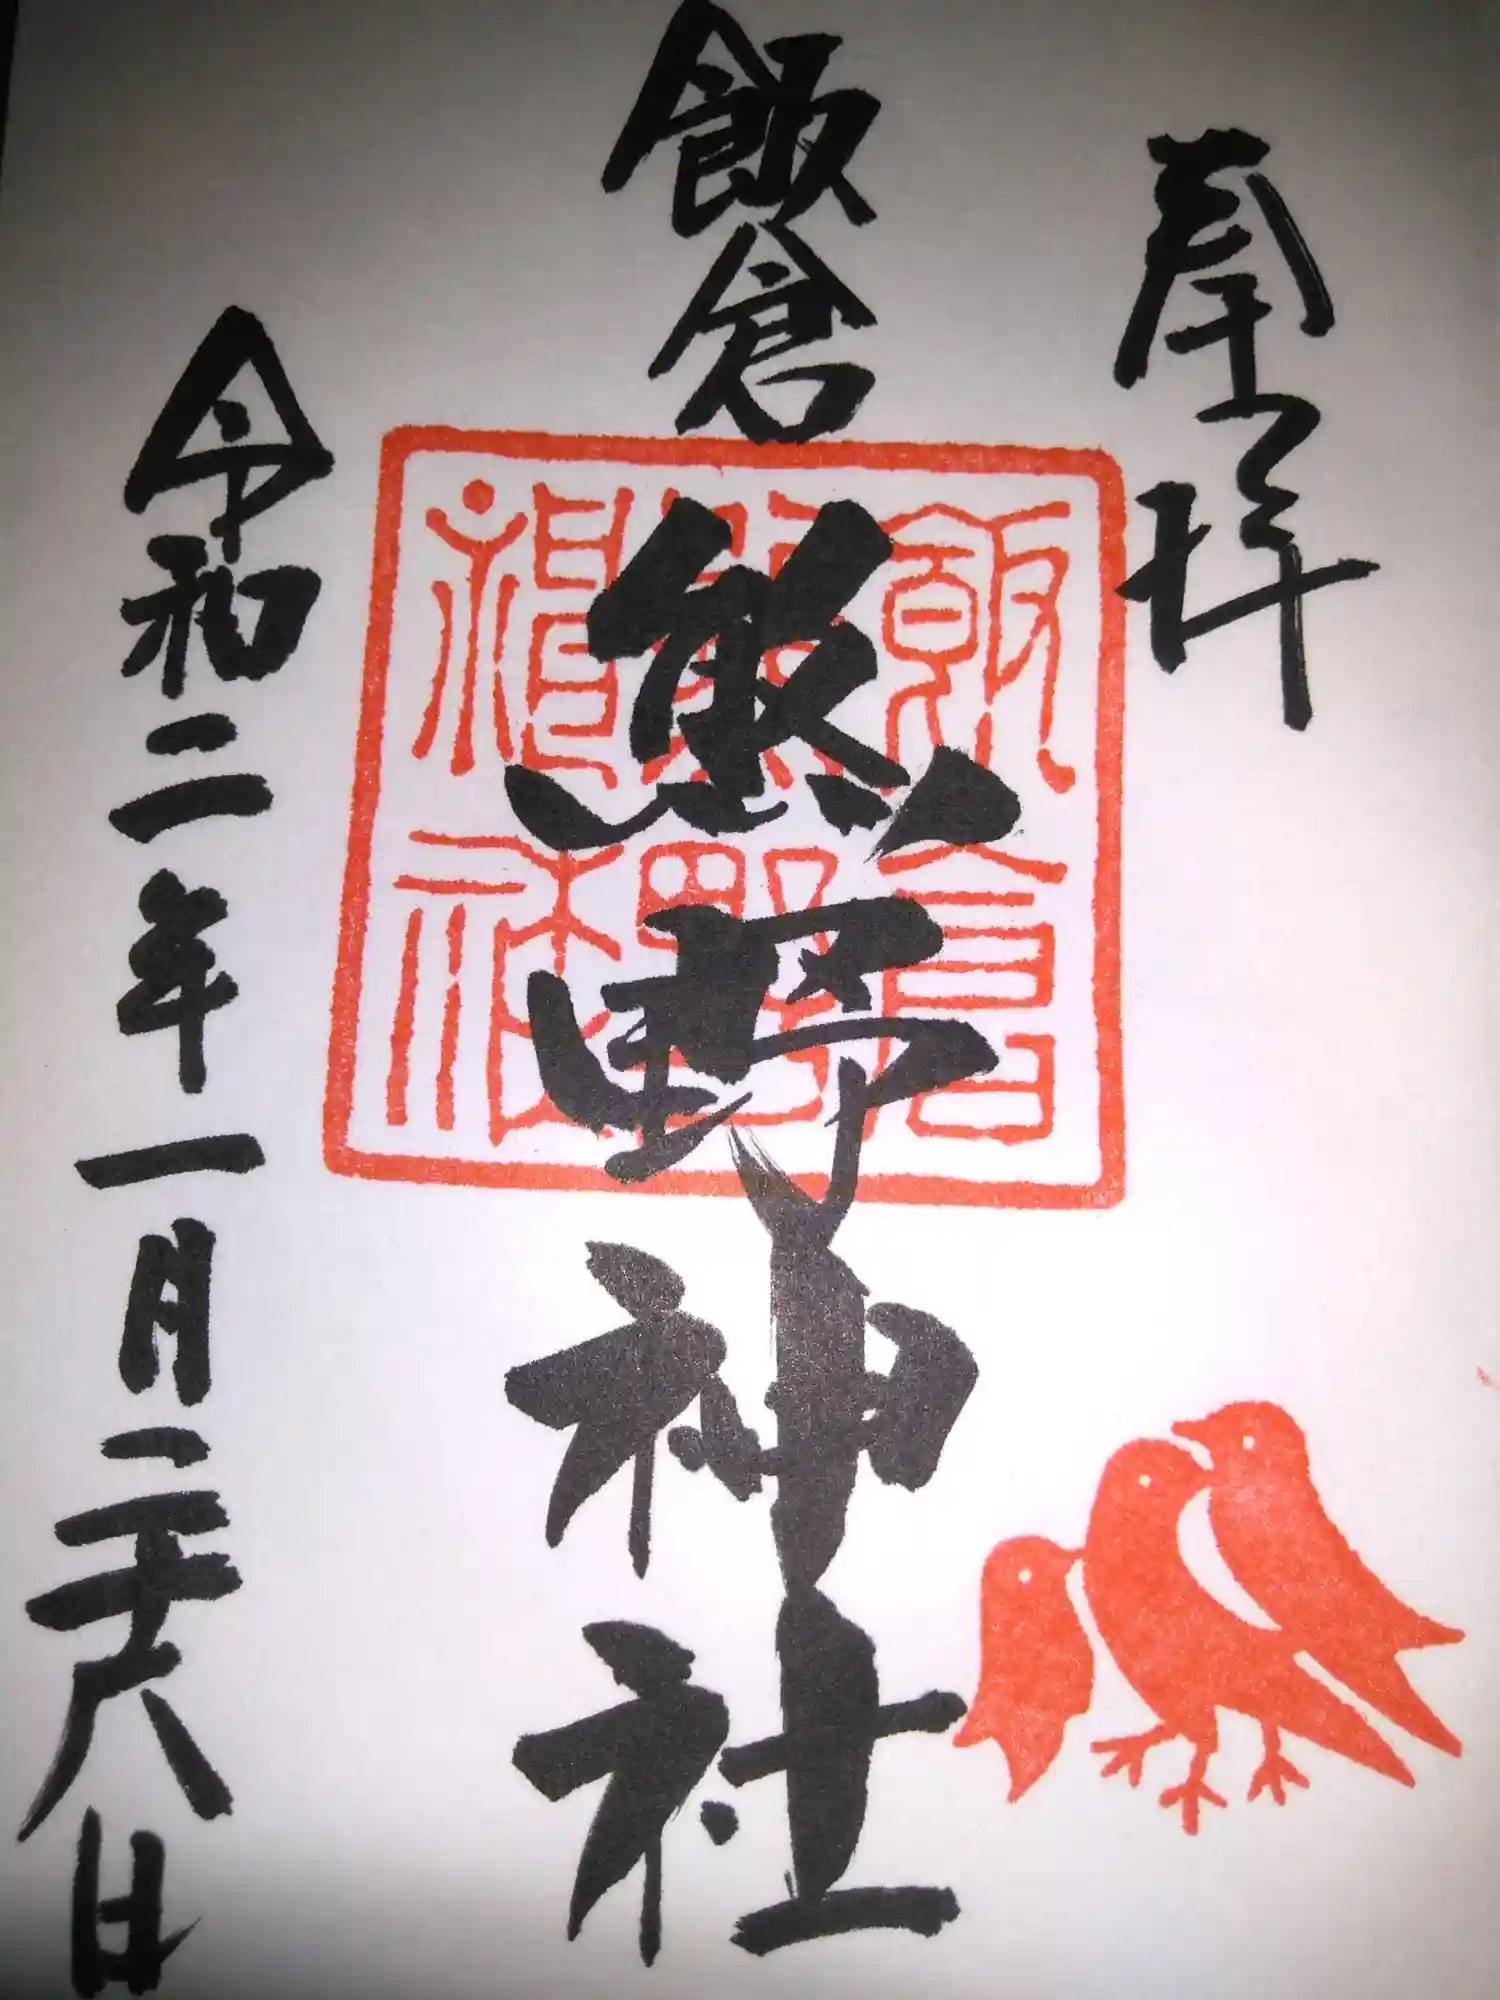 奉拝
飯倉
熊野神社
飯倉
熊野
神社
令和二年一月二十八日